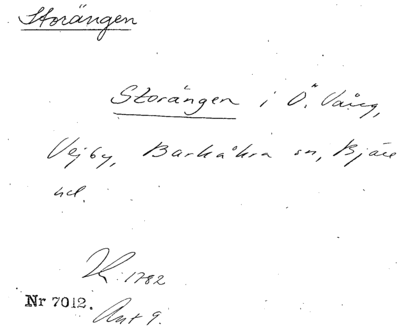 Storängen
Storängen i Ö. Vång,
Vejby, Barkåkra sn, Bjäre
hd.
K. 1782
Nr 7012.
Ant 9.